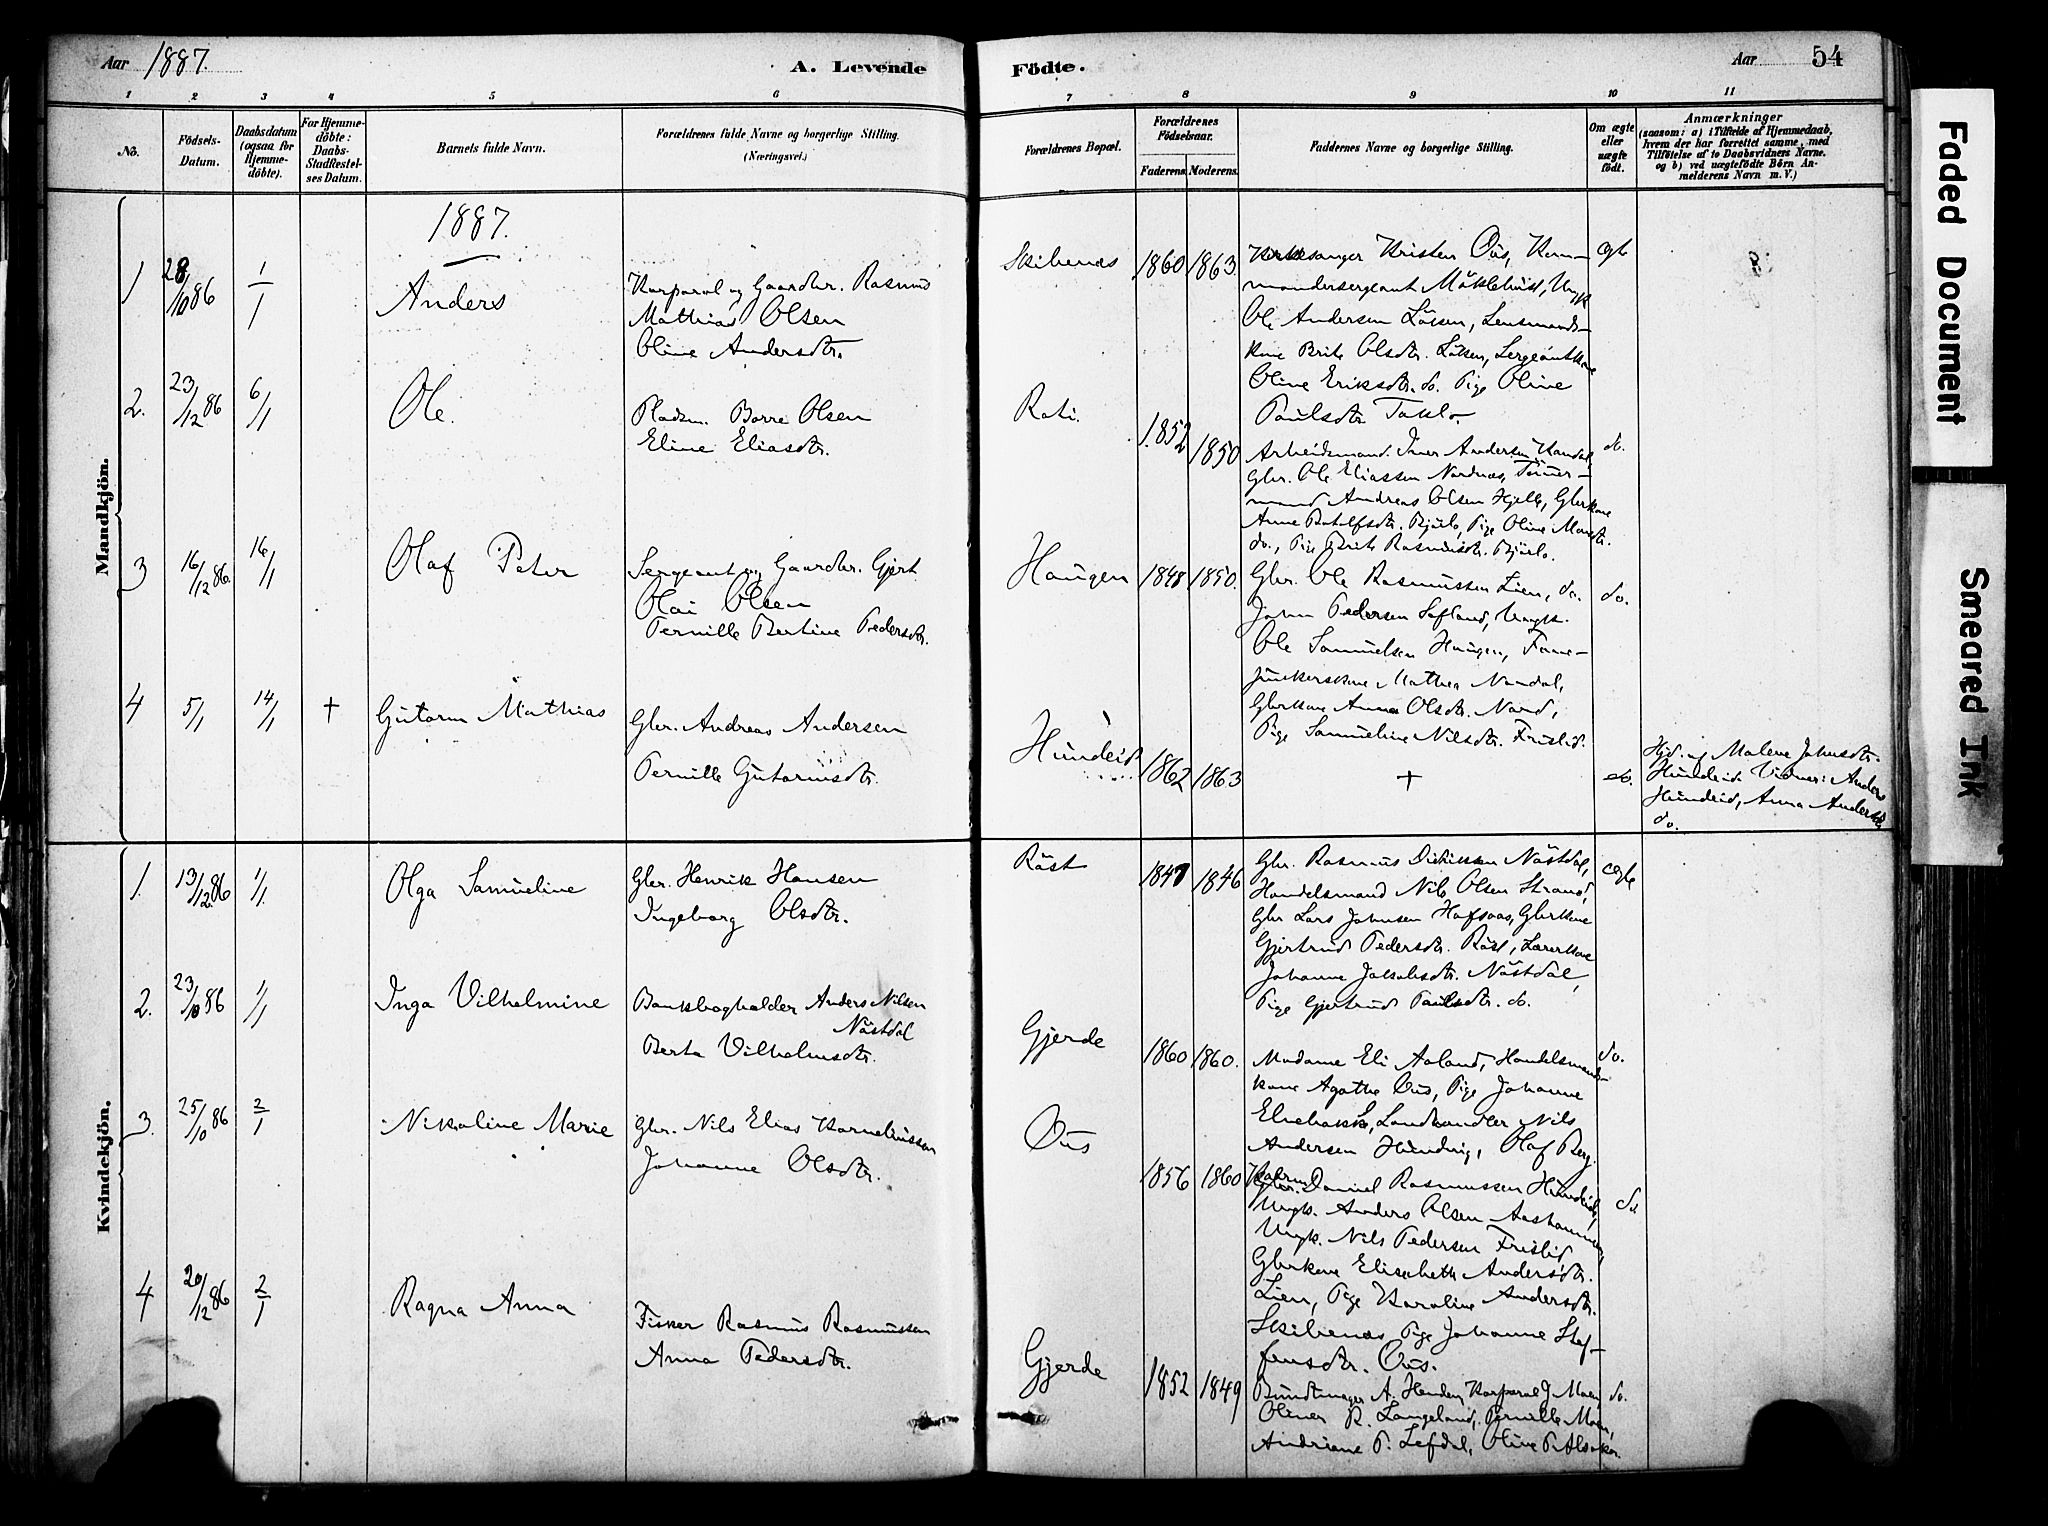 Aar 1887.
A. Levende
Födte.
Aar
54
1 2 3 4 5 6
7 8 9 10 11
No.
Födsels-
Datum.
Daabsdatum
(ogsaa for
Hjemme-
döbte).
For Hjemme-
döbte:
Daabs-
Stadfæstel-
ses Datum.
Barnets fulde Navn.
Forældrenes fulde Navne og borgerlige Stilling.
(Næringsvei.)
Forældrenes Bopæl.
Forældrenes
Födselsaar.
Faderens. Moderens.
Faddernes Navne og borgerlige Stilling.
Om ægte
eller
uægte
födt.
Anmærkninger
(saasom: a) i Tilfælde af Hjemmedaab,
hvem der har forrettet samme, med
Tilföielse af to Daabsvidners Navne.
og b) ved uægtefödte Börn An-
melderens Navn m.V.)
Mandkjön.
1887.
1 28/10 86 1/1 Anders
Korporal og Gaardbr. Rasmus
Mathias Olsen
Oline Andersdtr.
Skibenæs 1860 1863.
Kirkesanger Kristen Ous, Kom-
mandersergeant Möklebust, Ungk
Ole Andersen Löken, Lensmands-
kone Brite Olsdtr. Löken, Sergeantkone
Oline Eriksdtr. do. Pige Oline
Paulsdtr Taklo
ægte
2. 23/12 86 6/1 Ole.
Pladsm. Borre Olsen
Eline Eliasdtr.
Roti. 1852 1850
Arbeidsmand Iver Andersen
Gbr. Ole Eliassen Nordnæs, Tömer-
mand Andreas Olsen Hjelle, Gbrkone
Anne Rotolfsdtr. Bjørlo, Pige Oline Monsdtr.
do., Pige Brite Rasmusdtr. Bjørlo.
do.
3 16/12 86. 16/1 Olaf Peter
Sergeant og Gaardbr. Gjert
Olai Olsen
Pernille Bertine Pedersdtr.
Haugen 1848 1850.
Gbr. Ole Rasmussen Lien, do.
John Pedersen Lefland, Ungk.
Ole Samuelsen Haugen, Fane-
junkerskone Mathea Nordal,
Gbrkone Anna Olsdtr. Nord,
Pige Samueline Nilsdtr. Frislid.
do.
4 5/1 14/1 + Gutorm Mathias
Gbr. Andreas Andersen
Pernille Gutormsdtr.
Hundeid 1862 1863 + do.
Hjd. af Malene Johnsdtr.
Hundeid. Vidner: Anders
Hundeid, Anna Andersdtr.
do.
Kvindekjön.
1. 13/12 86 1/1. Olga Samueline
Gbr. Henrik Hansen
Ingeborg Olsdtr.
Röst 1847 1846
Gbr. Rasmus Didriksen Nöstdal,
Handelsmand Nils Olsen Strand,
Gbr Lars Johnsen Hafsaas, Gbrkone
Gjertrud Pedersdtr. Röst, Lærerkone
Johanne Jakobsdtr. Nöstdal,
Pige Gjertrud Paulsdtr. do.
ægte
2. 23/10 86 1/1 Inga Vilhelmine
Bankbogholder Anders Nilsen
Nöstdal
Berta Vilhelmsdtr.
Gjerde 1860 1860.
Madame Eli Aaland, Handelsmands-
kone Agathe Ous, Pige Johanne
Elnebakk, Landhandler Nils
Andersen Hunding, Olaf Berg.
do.
3. 25/10 86 2/1 Nikoline Marie
Gbr. Nils Elias Korneliussen
Johanne Olsdtr.
Ous 1856 1860
Gbr. Daniel Rasmussen Hundeid,
Ungk. Anders Olsen Aashammer,
Ungk. Nils Pedersen Frislid,
Gbrkone Elisabeth Andersdtr.
Lien, Pige Karoline Andersdtr.
Skibenæs Pige Johanne Stef-
fensdtr. Ous.
do.
4 20/12 86 2/1 Ragna Anna
Fisker Rasmus Rasmussen
Anna Pedersdtr.
Gjerde 1852 1849
Bundtmager A. Henden, Korporal J. Moen,
R. Langeland, Pernille Moen,
Andriane P. Lefdal, Oline P.
do.
Faded Document
Smeared Ink